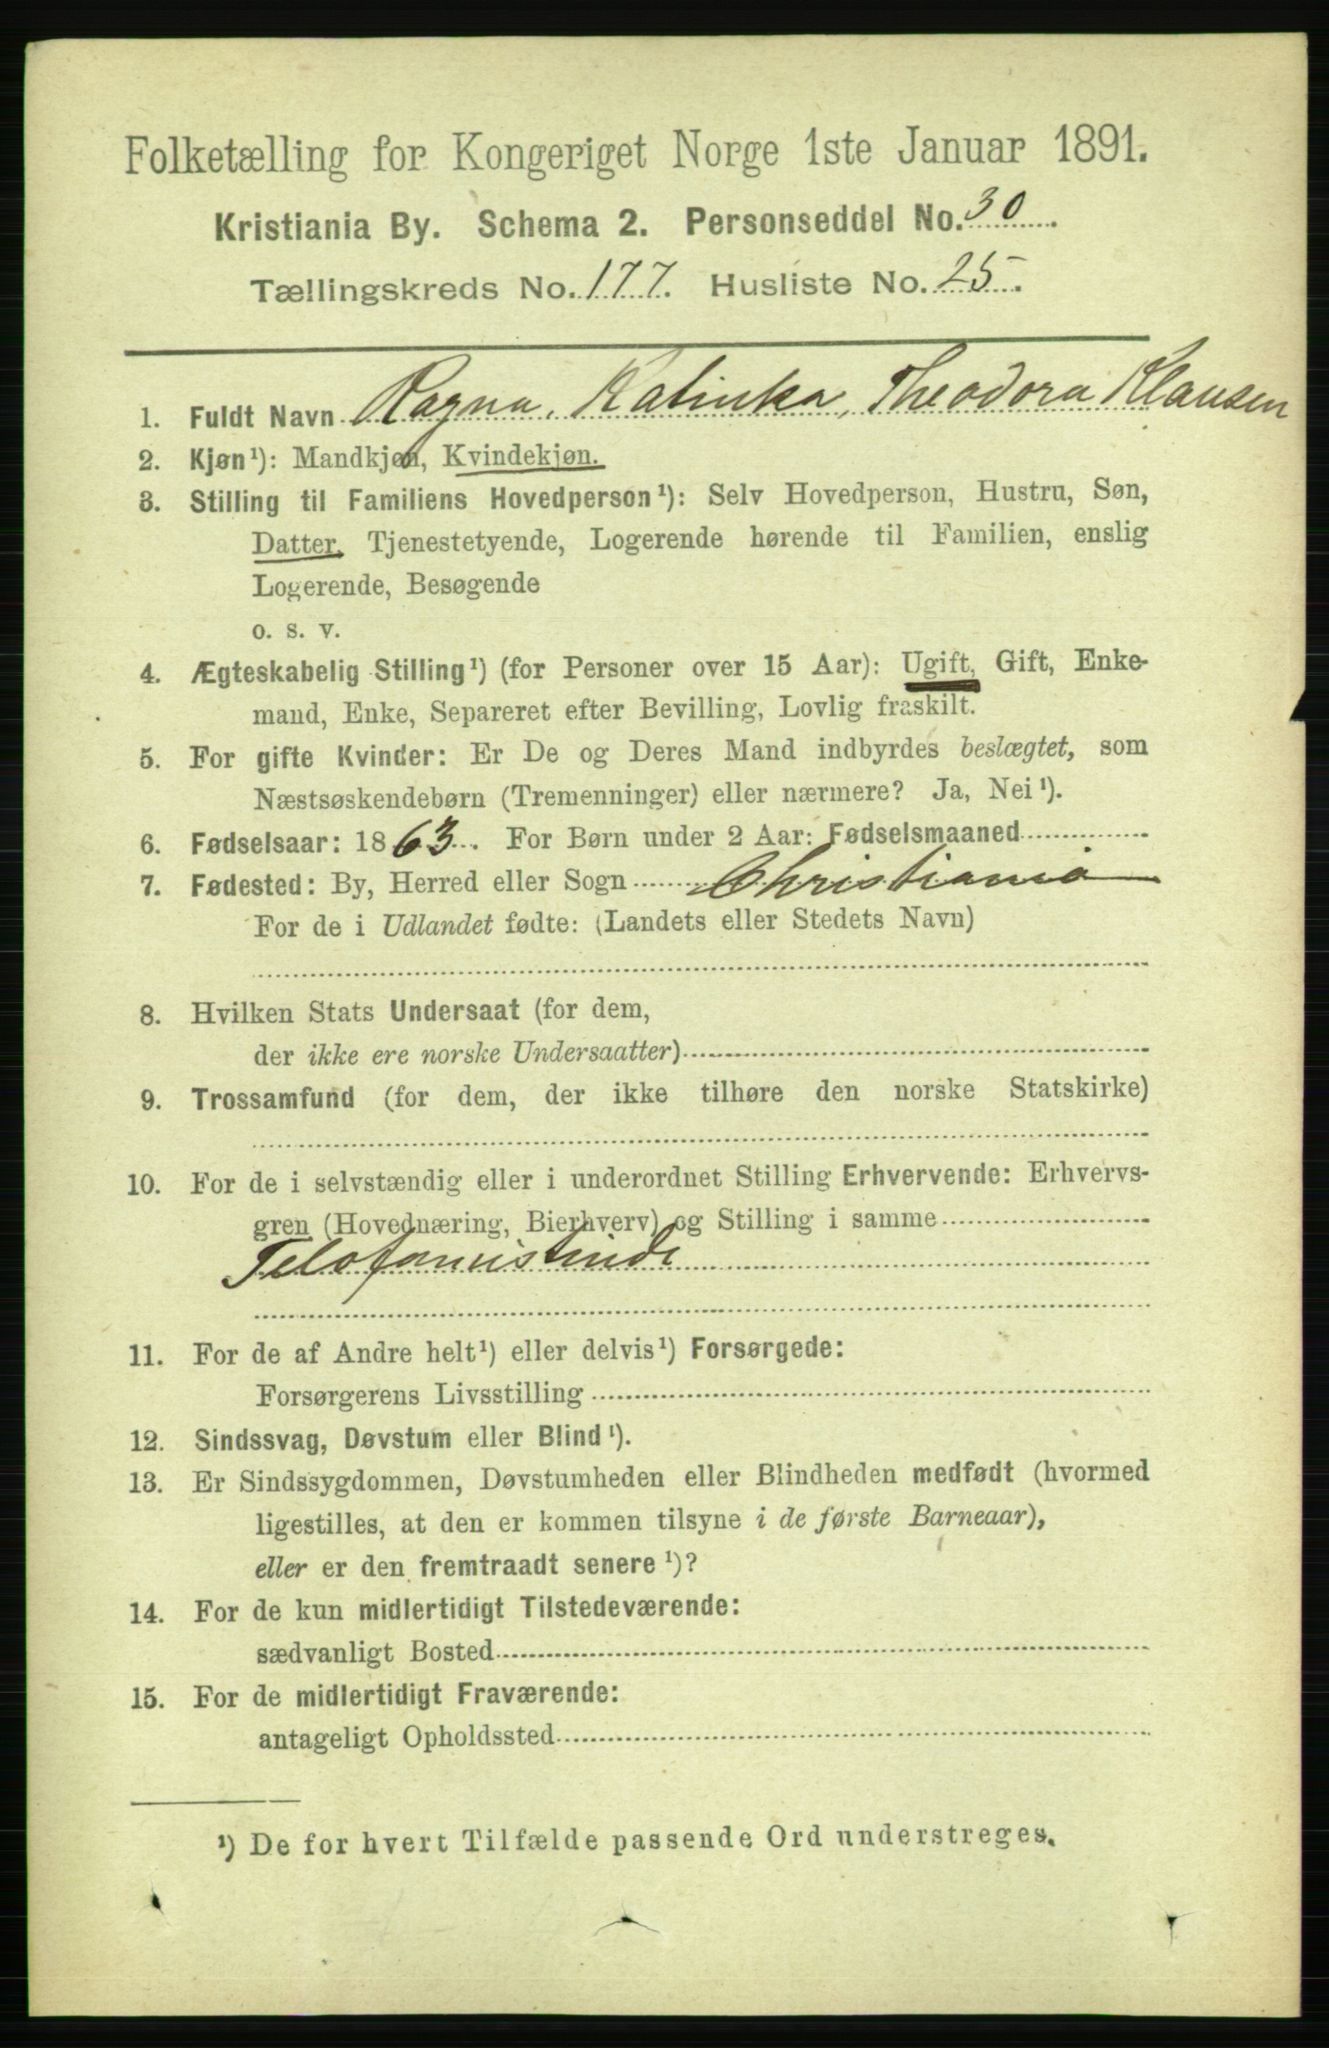 Folketælling for Kongeriget Norge 1ste Januar 1891.
Kristiania By. Schema 2. Personseddel No. 30.
Tællingskreds No. 177. Husliste No. 25.
1. Fuldt Navn Ragna, Katinka, Theodora Klausen
2. Kjøn¹): Mandkjøn, Kvindekjøn.
3. Stilling til Familiens Hovedperson¹): Selv Hovedperson, Hustru, Søn,
Datter, Tjenestetyende, Logerende hørende til Familien, enslig
Logerende, Besøgende
o. s. v.
4. Ægteskabelig Stilling¹) (for Personer over 15 Aar): Ugift, Gift, Enke-
mand, Enke, Separeret efter Bevilling, Lovlig fraskilt.
5. For gifte Kvinder: Er De og Deres Mand indbyrdes beslægtet, som
Næstsøskendebørn (Tremenninger) eller nærmere? Ja, Nei¹).
6. Fødselsaar: 1863. For Børn under 2 Aar: Fødselsmaaned
7. Fødested: By, Herred eller Sogn Christiania
For de i Udlandet fødte: (Landets eller Stedets Navn)
8. Hvilken Stats Undersaat (for dem,
der ikke ere norske Undersaatter)
9. Trossamfund (for dem, der ikke tilhøre den norske Statskirke)
10. For de i selvstændig eller i underordnet Stilling Erhvervende: Erhvervs-
gren (Hovednæring, Bierhverv) og Stilling i samme
Telefonistinde
11. For de af Andre helt¹) eller delvis¹) Forsørgede:
Forsørgerens Livsstilling
12. Sindssvag, Døvstum eller Blind¹).
13. Er Sindssygdommen, Døvstumheden eller Blindheden medfødt (hvormed
ligestilles, at den er kommen tilsyne i de første Barneaar),
eller er den fremtraadt senere¹)?
14. For de kun midlertidigt Tilstedeværende:
sædvanligt Bosted
15. For de midlertidigt Fraværende:
antageligt Opholdssted
¹) De for hvert Tilfælde passende Ord understreges.